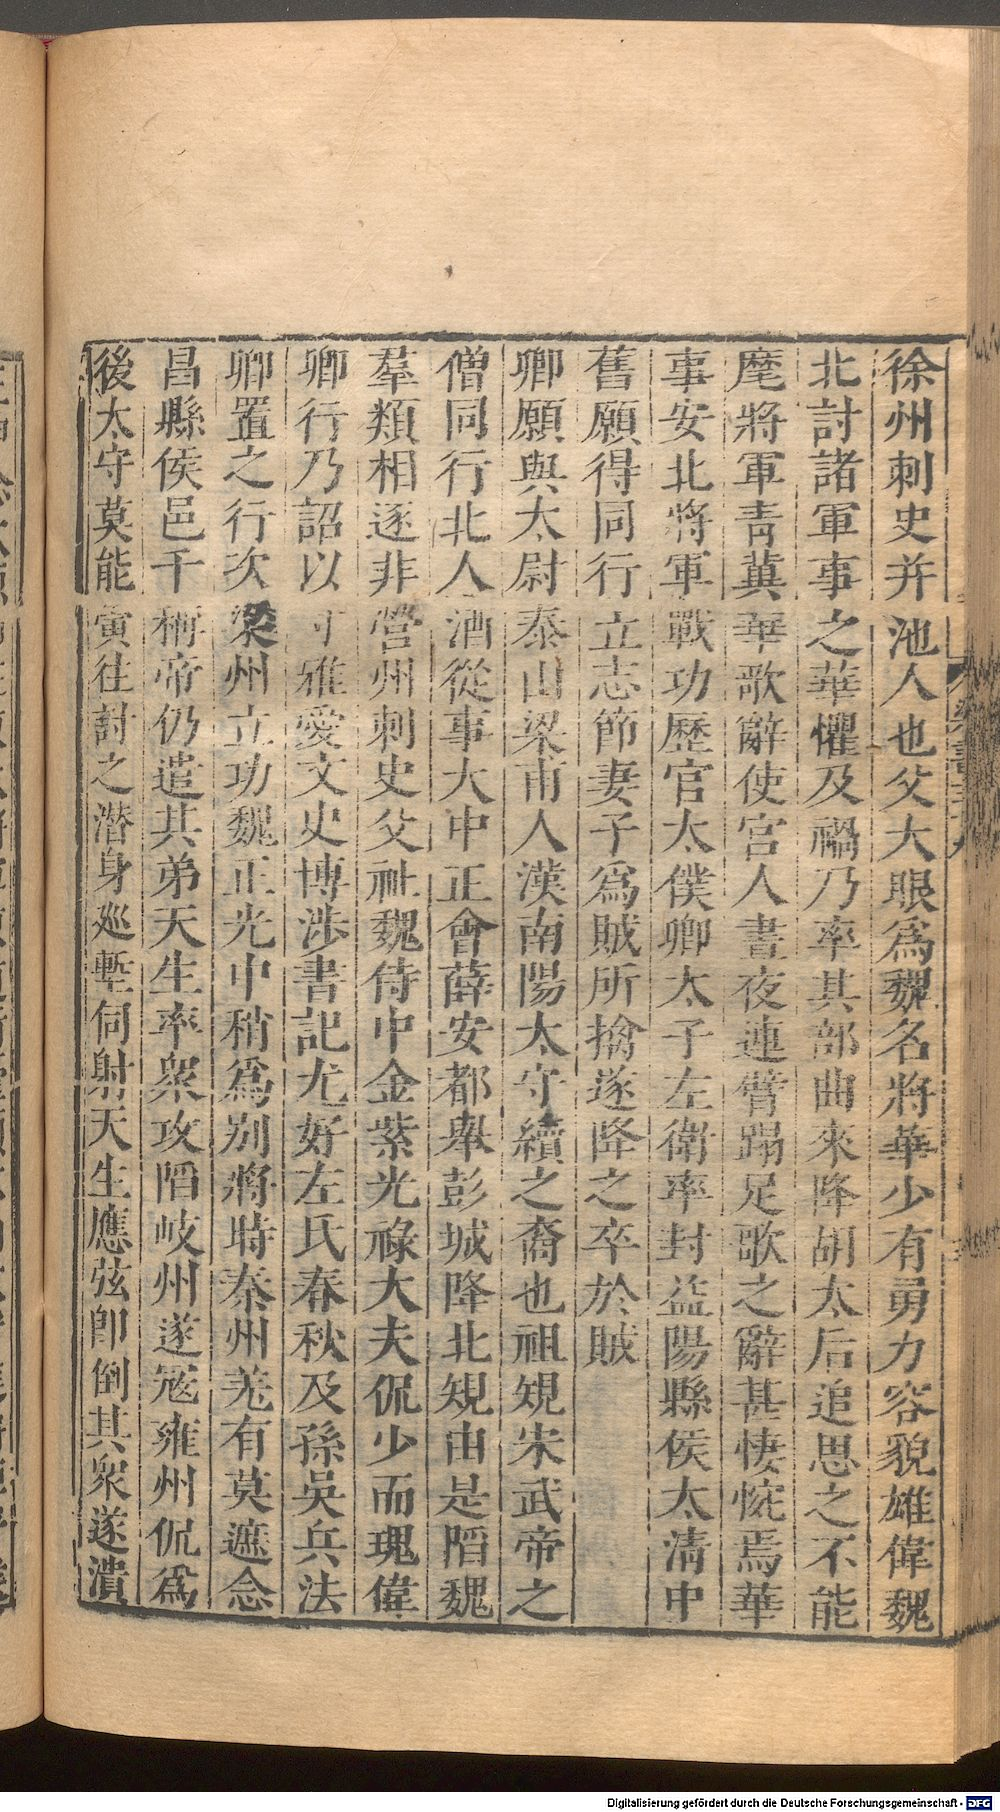 徐州刺史并池人也父大眼爲魏名將華少有勇力容貌雄偉魏
北討諸軍事之華懼及禍乃率其部曲來降胡太后追思之不能
麾將軍青冀華歌辭使宮人晝夜連臂蹋足歌之辭甚悽惋焉華
事安北將軍戰功歷官太僕卿太子左衛率封益陽縣侯太清中
舊願得同行立志節妻子爲賊所擒遂降之卒於賊
卿願與太尉泰山梁甫人漢南陽太守續之裔也祖規宋武帝之
僧同行北人酒從事大中正會薛安都舉彭城降北規由是陷魏
羣類相逐非營州刺史父祉魏侍中金紫光祿大夫侃少而瑰偉
卿行乃詔以寸雅愛文史博涉書記尤好左氏春秋及孫吳兵法
卿置之行次梁州立功魏正光中稍爲別將時秦州羌有莫遮念
昌縣侯邑千稱帝仍遣其弟天生率衆攻陷岐州遂寇雍州侃爲
後太守莫能寅往討之潛身巡塹伺射天生應弦卽倒其衆遂潰
Digitalisierung gefördert durch die Deutsche Forschungsgemeinschaft - DFG